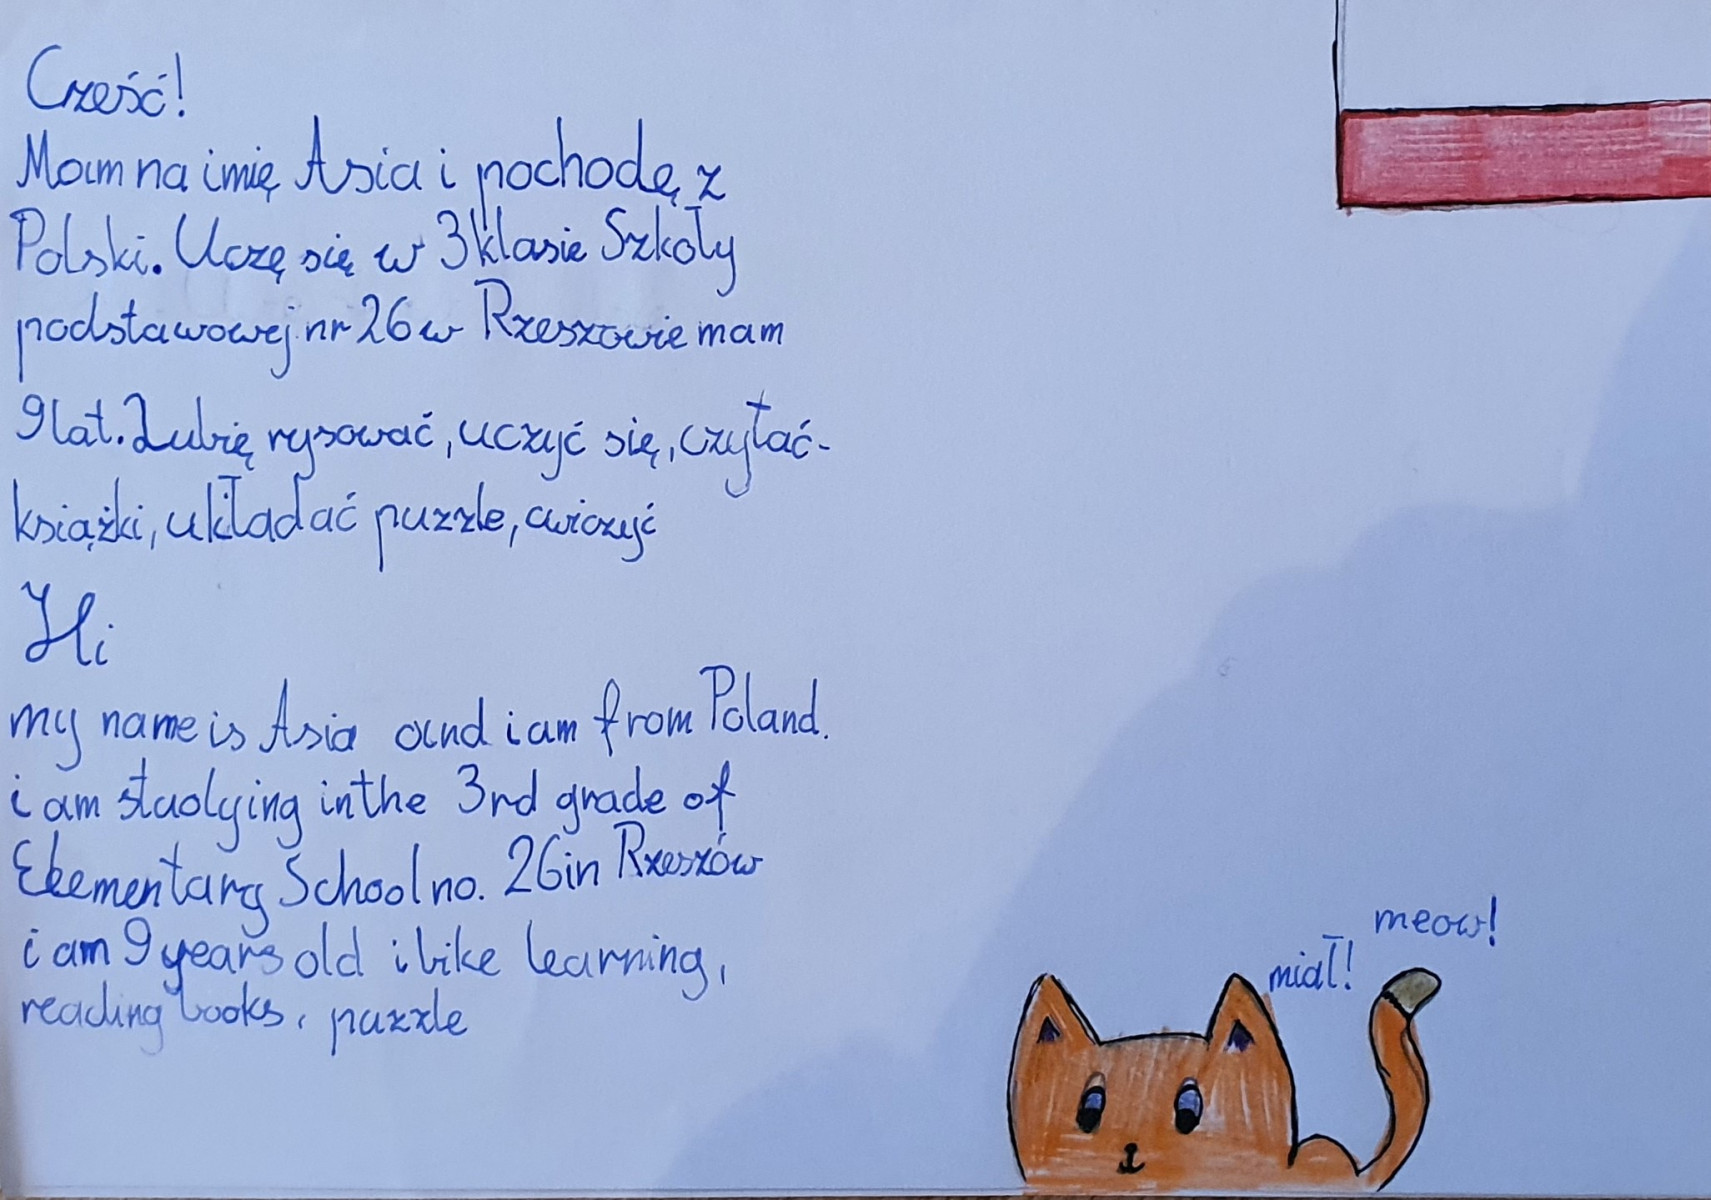 Cześć!
Mam na imię Asia i pochodę z
Polski. Uczę się w 3 klasie Szkoły
podstawowej nr 26 w Rzeszowie mam
9 lat. Lubię rysować, uczyć się, czytać-
książki, układać puzzle, cwiczyć
Hi
my name is Asia and i am from Poland.
i am studying in the 3rd grade of
Elementary School no. 26 in Rzeszów
i am 9 years old i like learning,
reading books, puzzle
meow!
miał!